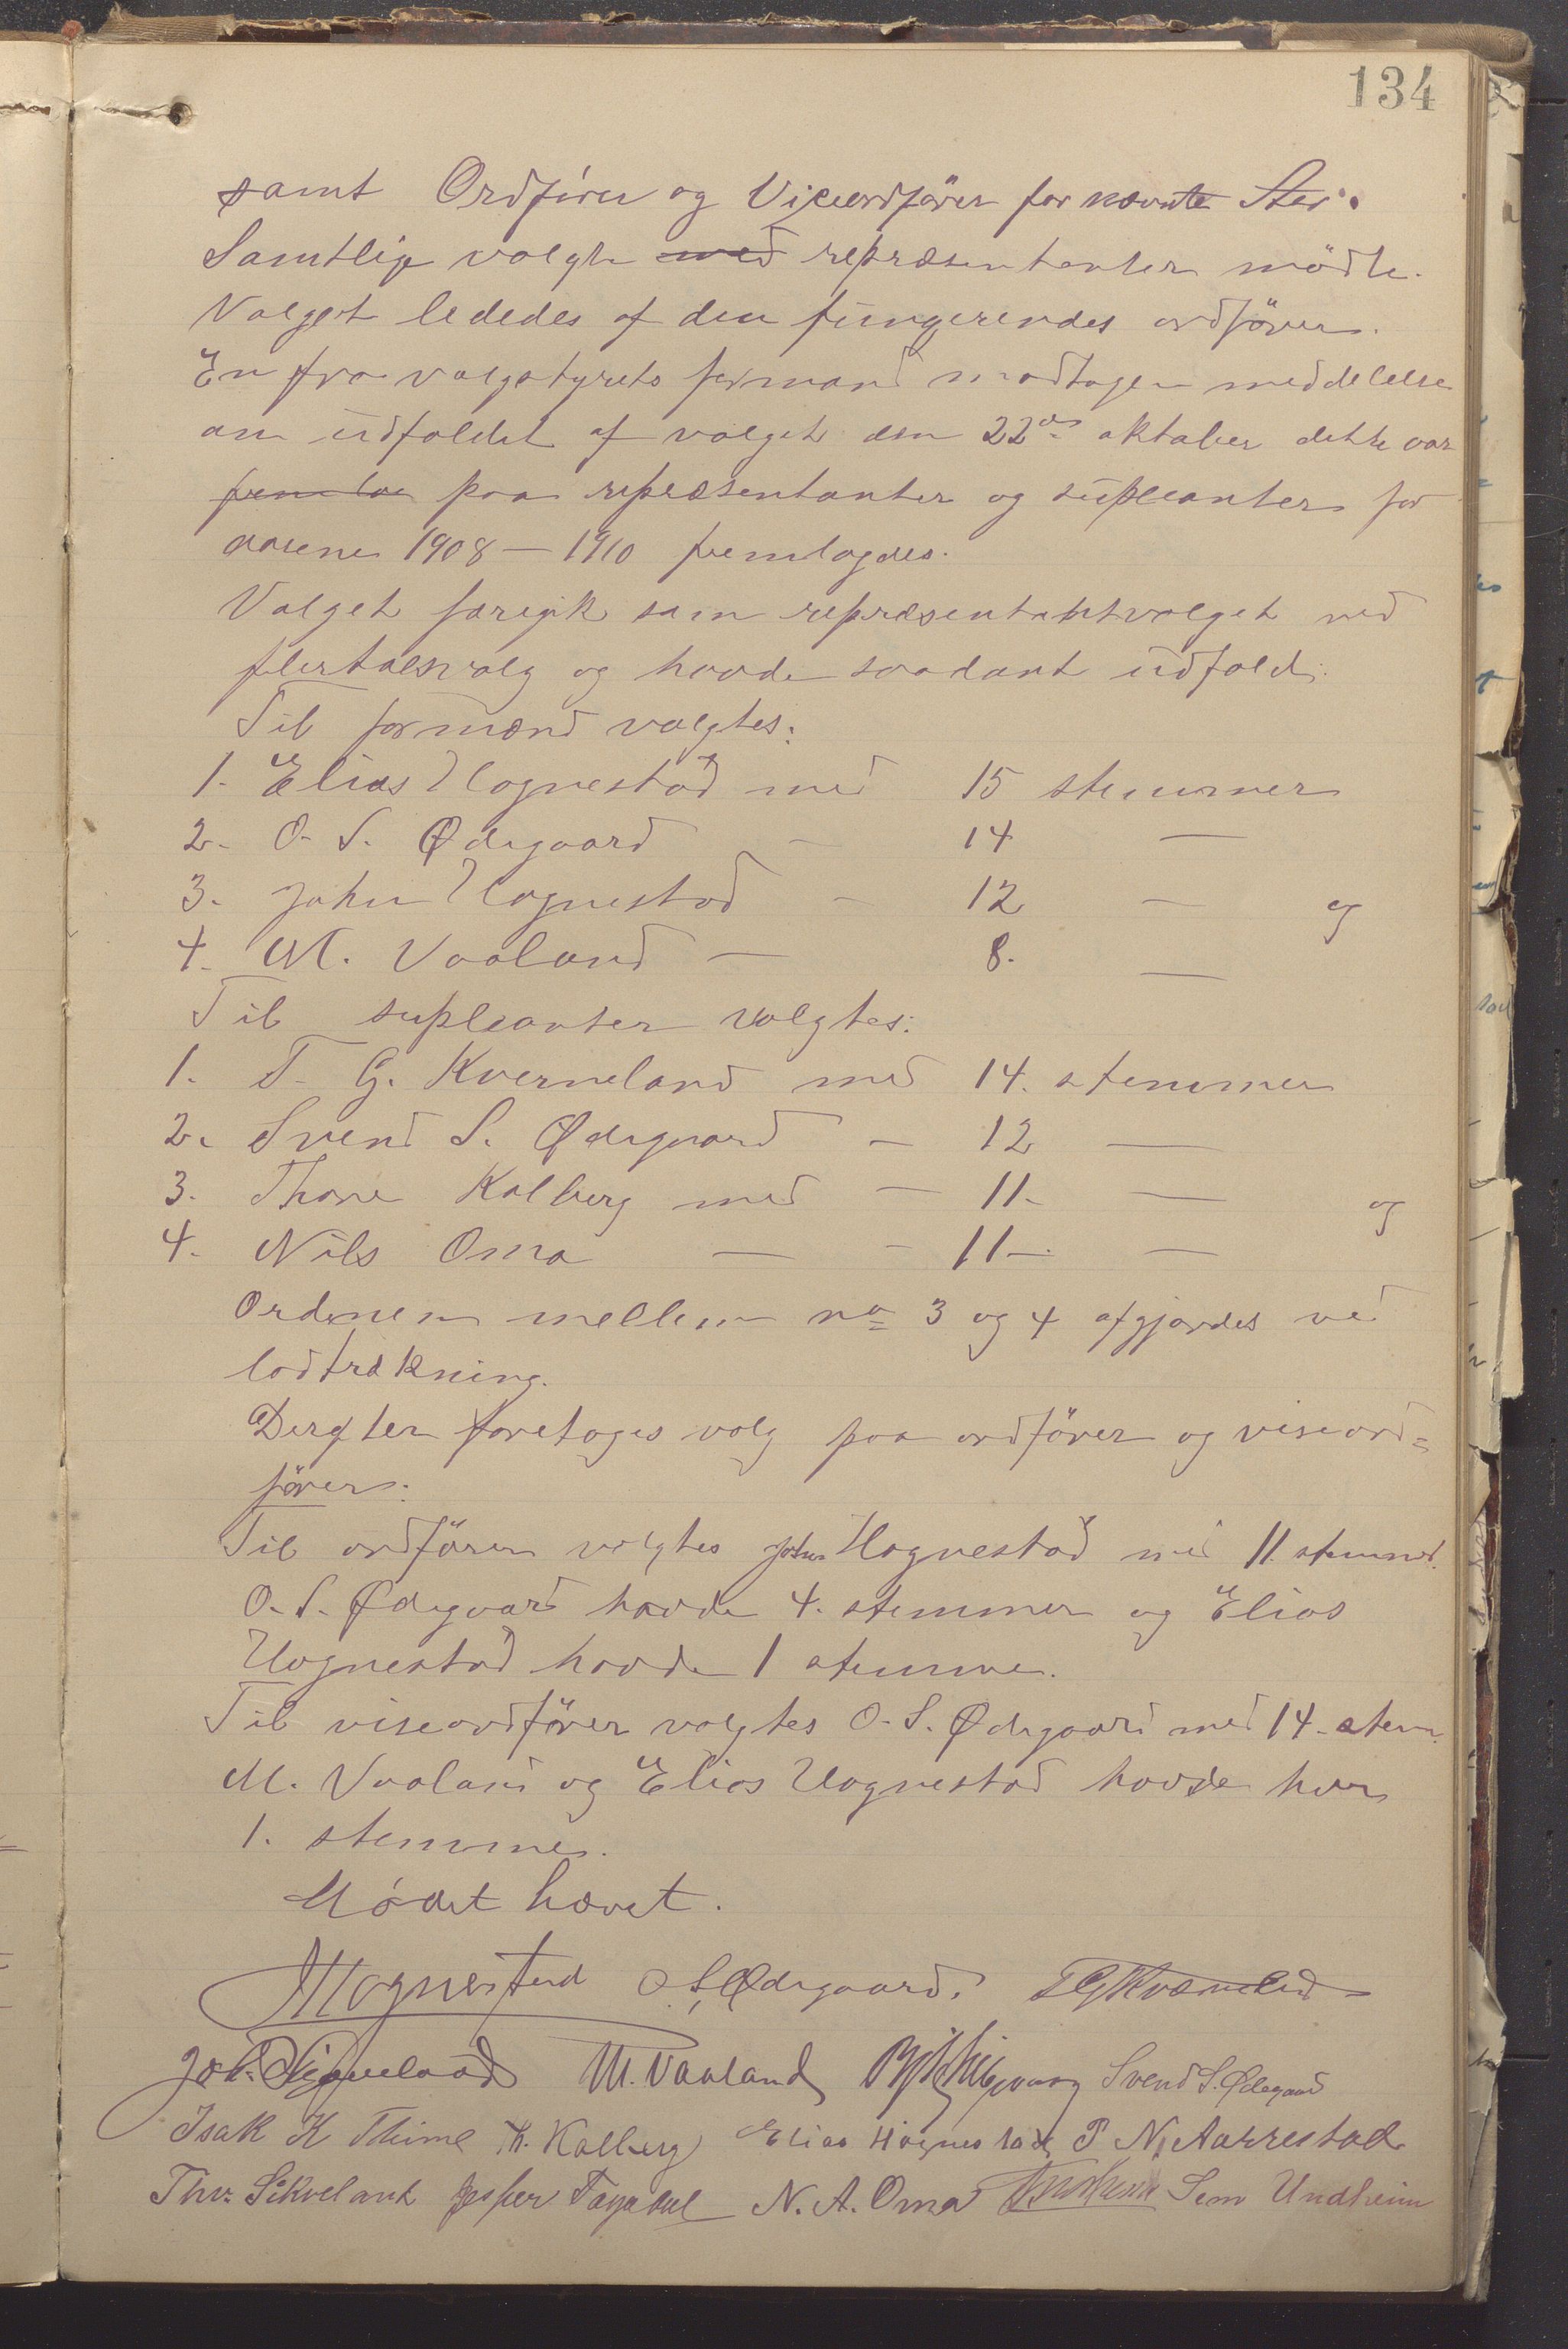 134
samt Ordfører og Viceordförer for nævnte
Samtlige valgte med repræsentanter mödte.
Valget lededes af den fungerendes ordförer.
En fra valgstyrets formand modtagen meddelelse
om udfaldet af valget den 22de oktober dette aar
paa repræsentanter og supleanter for
aarene 1908 — 1910 fremlagdes.
Valget foregik som repræsentantvalget ved
flertalsvalg og havde saadant udfald:
Til formænd valgtes:
1. Elias Hognestad med 15 stemmer
2. O. S. Ødegaard — 14 —
3. John Hognestad — 12 — og
4. M. Vaaland — 8. —
Til supleanter valgtes:
1. T. G. Kverneland med 14. stemmer
2. Svend S. Ødegaard — 12 —
3. Thore Kalberg med — 11 — og
4. Nils Oma — - 11 — —
Ordenen mellem no 3 og 4 afgjordes ved
lodtrækning.
Derefter foretoges valg paa ordförer og viseord=
förer:
Til ordförer valgtes John Hognestad med 11 stemmer.
O. S. Ødegaard havde 4. stemmer og Elias
Hognestad havde 1 stemme.
Til viseordförer valgtes O. S. Ødegaard med 14. stem.
M. Vaaland og Elias Hognestad havde hver
1. stemme.
Mödet hævet.
J Hognestad O. S. Ødegaard. T G Kverneland
M. Vaaland Svend S. Ødegaard
Isak K Thime Th. Kalberg Elias Hognestad P N. Aarrestad
Thr. Sikveland Jesper N. A. Oma Sem Undheim